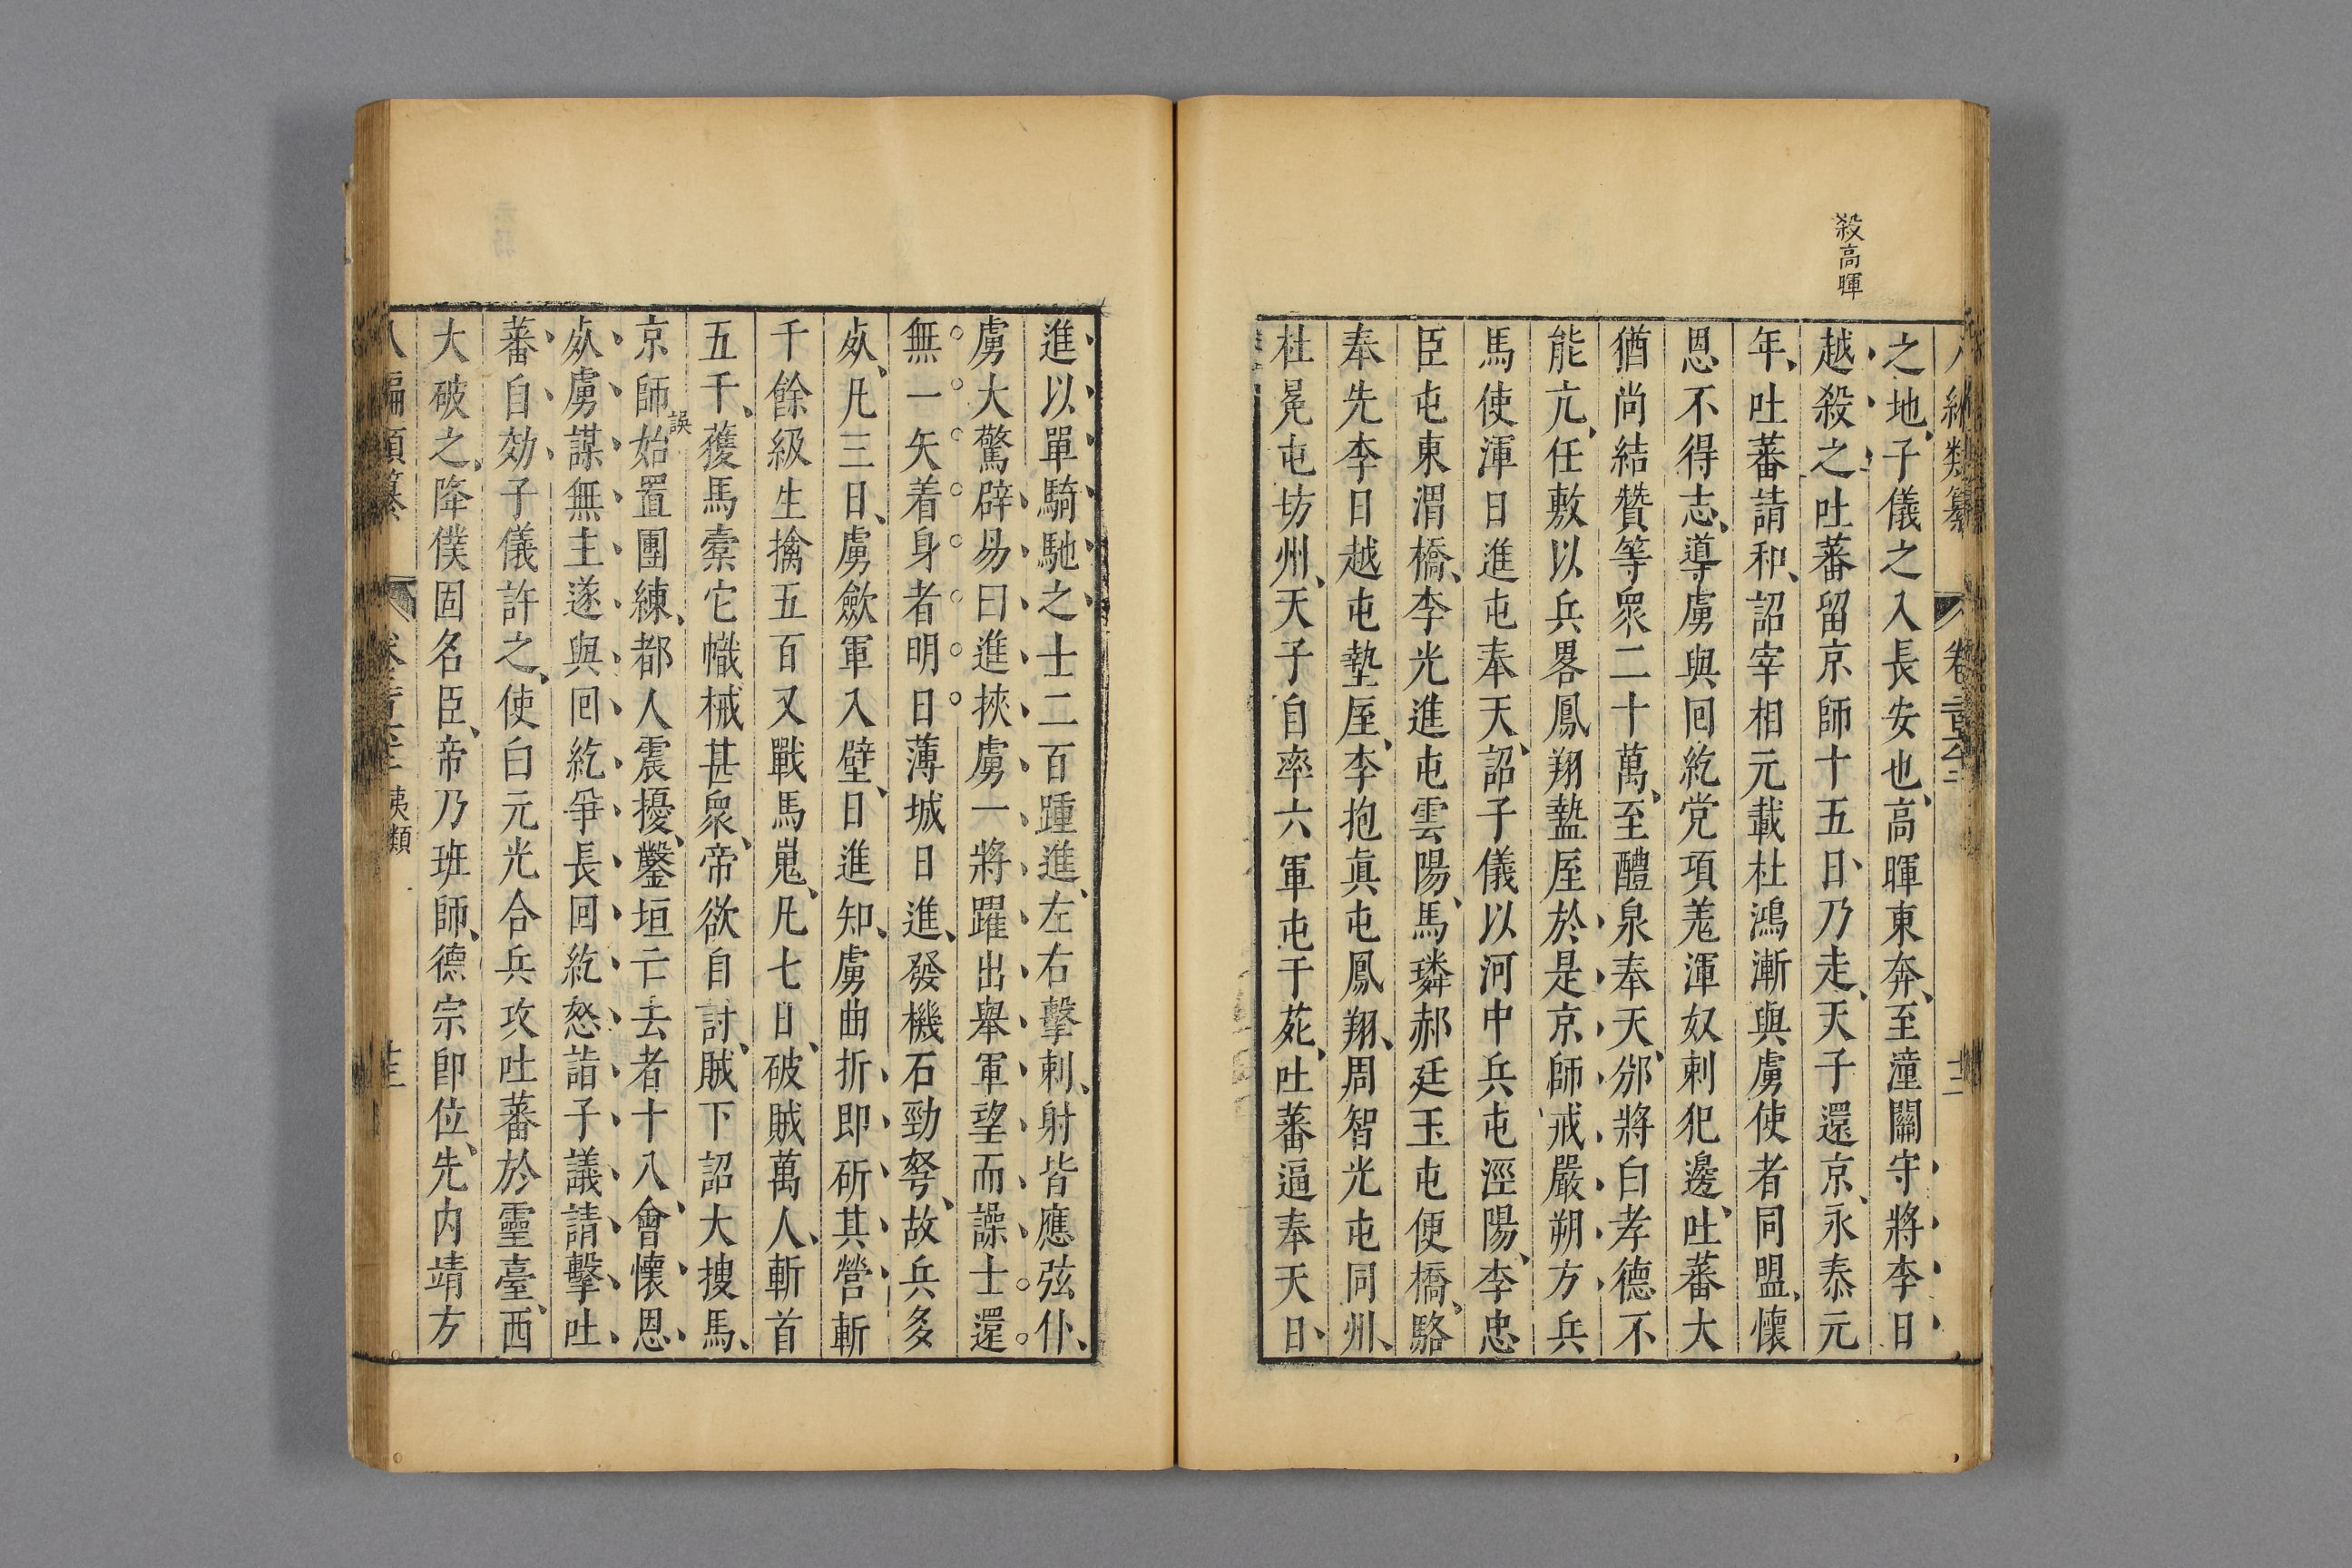 殺高暉
之地、子儀之入長安也、高暉東奔、至潼關守將李日
越殺之吐蕃留京師十五日、乃走、天子還京、永泰元
年、吐蕃請和、詔宰相元載杜鴻漸與虜使者同盟、懷
恩不得志、導虜與回紇党項羗渾奴剌犯邊、吐蕃大
猶尚結贊等衆二十萬、至醴泉奉天、邠將白孝德不
能亢、任敷以兵畧鳳翔盩厔於是京師戒嚴朔方兵
馬使渾日進屯奉天、詔子儀以河中兵屯涇陽、李忠
臣屯東渭橋、李光進屯雲陽、馬璘郝廷玉屯便橋、駱
奉先李日越屯墊厔、李抱眞屯鳳翔、周智光屯同州、
杜冕屯坊州、天子自率六軍屯于苑、吐蕃逼奉天日、
進以單騎馳之士二百踵進、左右擊刺、射皆應弦仆、
虜大驚辟易曰進挾虜一將躍出舉軍望而譟士還
無一矢着身者明日薄城日進、發機石勁弩、故兵多
死、凡三日、虜歛軍入壁、日進知、虜曲折即斫其營斬
千餘級生擒五百又戰馬嵬、凡七日、破賊萬人、斬首
五千、獲馬橐它幟械甚衆、帝欲自討、賊下詔大搜馬、
京師始置團練、都人震擾、鑿垣亡去者十八、會懷恩
誤
死虜謀無主遂與回紇爭長回紇怒詣子議請擊吐
蕃自効子儀許之、使白元光合兵攻吐蕃於靈臺、西
大破之、降僕固名臣、帝乃班師、德宗即位、先内靖方
八編類纂 卷二百六十二 夷類 十三